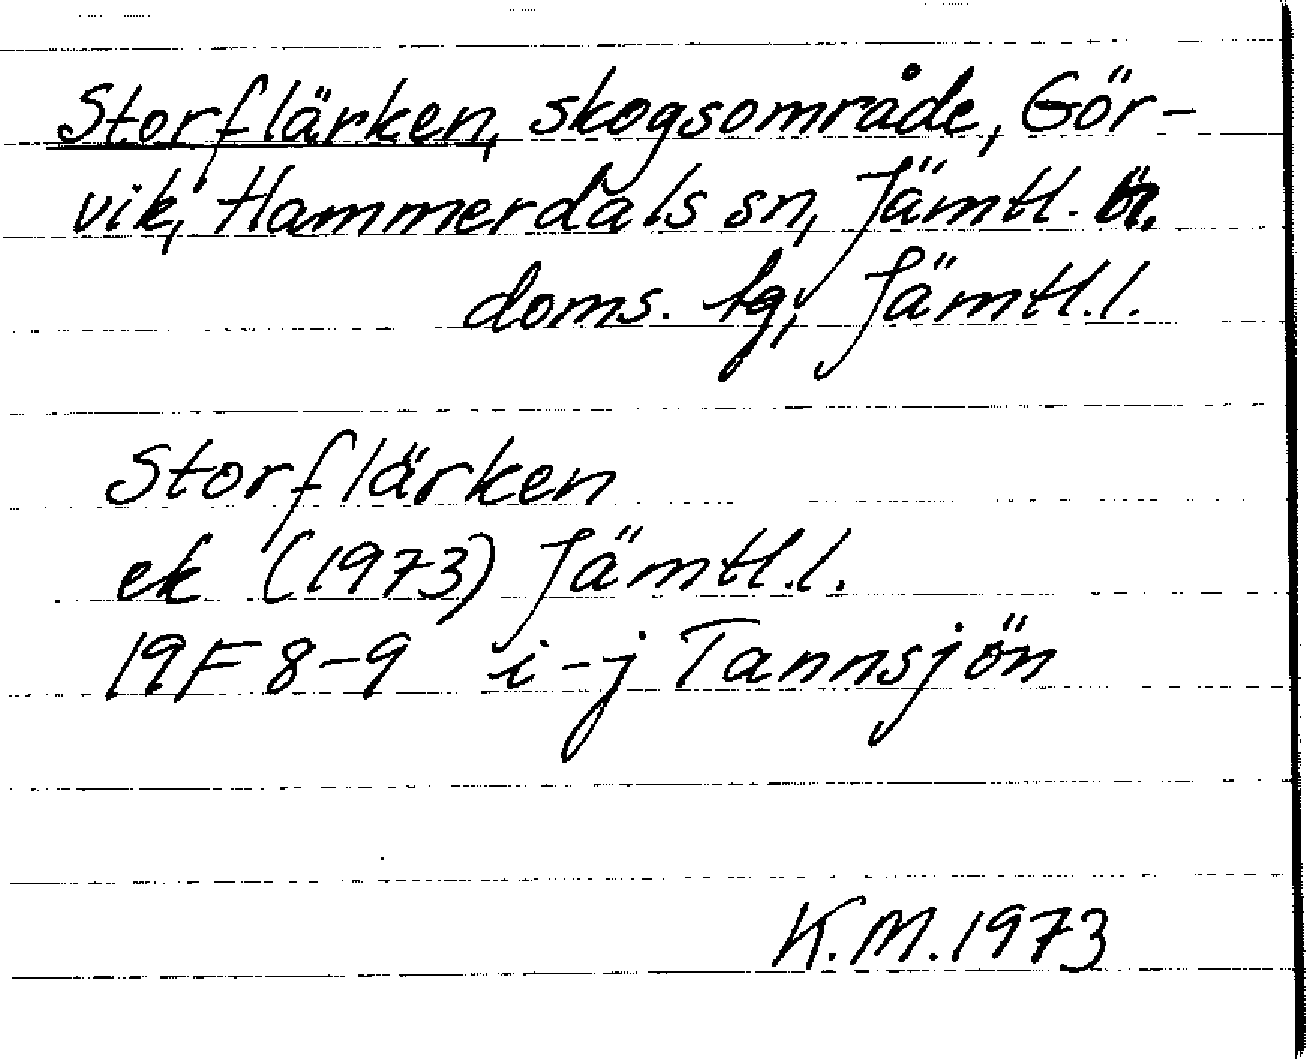 Storflärken, skogsområde, Gör-
vik, Hammerdals sn, Jämtl. n.
doms. tg, Jämtl.l.
Storflärken
ek (1973) Jämtl.l.
19F 8-9 i-j Tannsjön
K.M. 1973